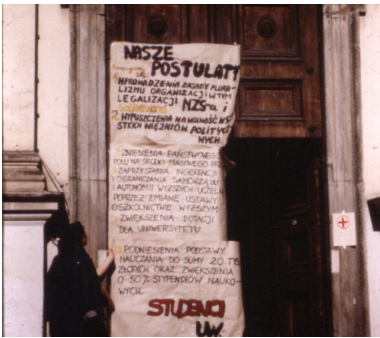 NASZE
POSTULATY
WPROWADZENIA ZASADY PLURA-
LIZMU ORGANIZACJI W TYM
LEGALIZACJI NZS-u i
2. WYPUSZCZENIA NA WOLNOŚĆ WSZ
STKICH WIĘŹNIÓW POLITYCZ
NYCH.
ZNIESIENIA PAŃSTWOWEGO
POLU NA ŚRODKI MASOWEGO
ZAPRZESTANIA INGERENCJI
I OGRANICZANIA SAMORZĄDU
I AUTONOMII WYŻSZYCH UCZELNI
POPRZEZ ZMIANĘ USTAWY
O SZKOLNICTWIE WYŻSZYM
ZWIĘKSZENIA DOTACJI
DLA UNIWERSYTETU.
PODNIESIENIA PODSTAWY
NAUCZANIA DO SUMY 20 TYS
ZŁOTYCH ORAZ ZWIĘKSZENIA
O 50% STYPENDIÓW NAUKO-
WYCH.
STUDENCI
UW.